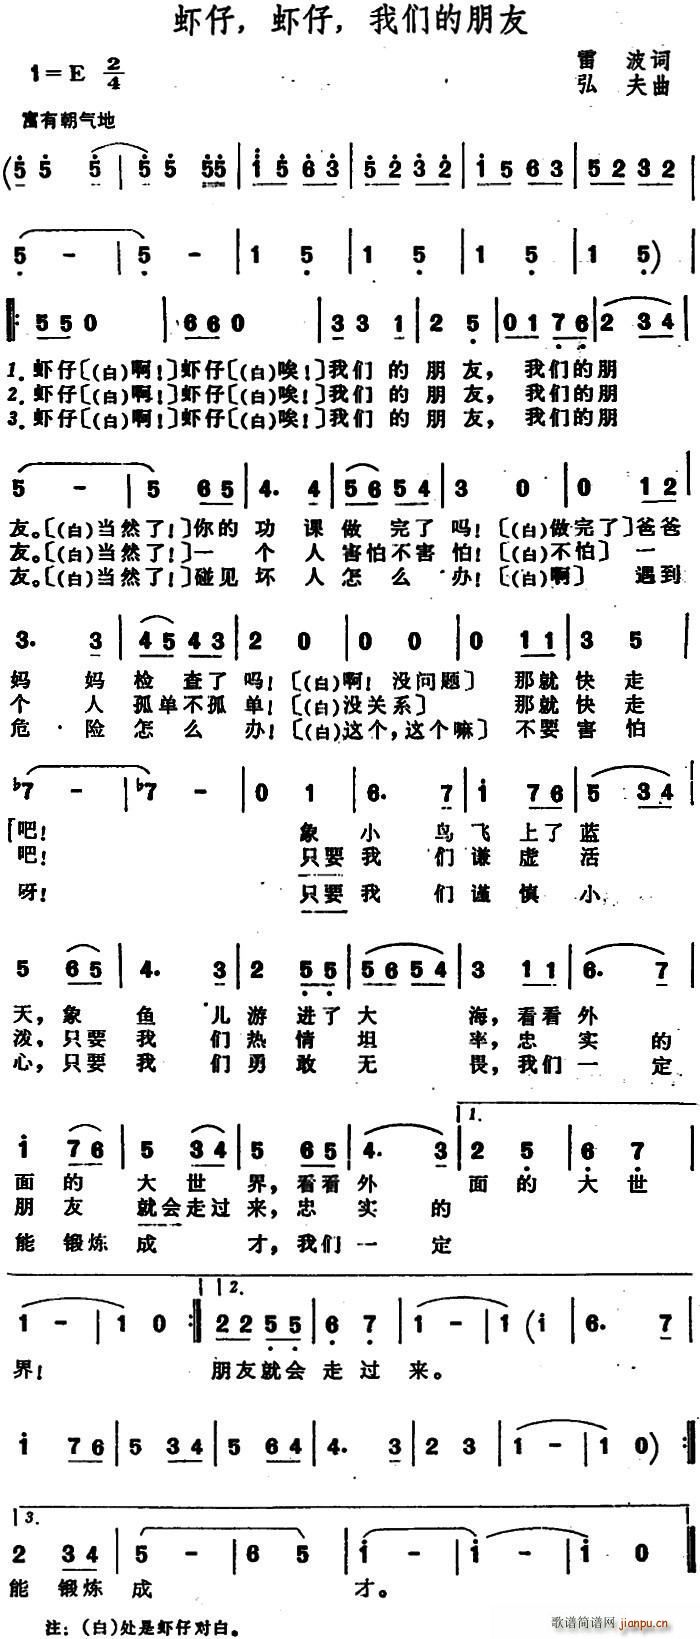 虾仔，虾仔，我们的朋友
1＝E 2/4
雷 波词
弘 夫曲
富有朝气地
(5 5 5 | 5 5 55 | 1 5 6 3 | 5 2 3 2 | 1 5 6 3 | 5 2 3 2 |
5 － | 5 － | 1 5 | 1 5 | 1 5 | 1 5) |
‖: 5 5 0 | 6 6 0 | 3 3 1 | 2 5 | 0 1 7 6 | 2 3 4 |
1．虾仔〔（白）啊！〕虾仔〔（白）唉！〕我们 的 朋 友， 我们的朋
2．虾仔〔（白）啊！〕虾仔〔（白）唉！〕我们 的 朋 友， 我们的朋
3．虾仔〔（白）啊！〕虾仔〔（白）唉！〕我们 的 朋 友， 我们的朋
5 － | 5 6 5 | 4. 4 | 5 6 5 4 | 3 0 | 0 1 2 |
友。〔（白）当然了！〕你的 功 课 做 完了 吗！〔（白）做完了〕爸爸
友。〔（白）当然了！〕一 个 人 害怕不害 怕！〔（白）不怕〕 一
友。〔（白）当然了！〕碰见 坏 人 怎 么 办！〔（白）啊〕 遇到
3. 3 | 4 5 4 3 | 2 0 | 0 0 | 0 1 1 | 3 5 |
妈 妈 检 查了 吗！〔（白）啊！没问题〕 那就 快 走
个 人 孤单不孤 单！〔（白）没关系〕 那就 快 走
危 险 怎 么 办！〔（白）这个，这个嘛〕 不要 害 怕
♭7 － | ♭7 － | 0 1 | 6. 7 | 1 7 6 | 5 3 4 |
吧！ 象 小 鸟 飞 上了 蓝
吧！ 只要 我 们 谦 虚 活
呀！ 只要 我 们 谨 慎 小
5 6 5 | 4. 3 | 2 5 5 | 5 6 5 4 | 3 1 1 | 6. 7 |
天，象 鱼 儿 游 进了 大 海，看看 外
泼，只要 我 们 热 情 坦 率，忠 实 的
心，只要 我 们 勇 敢 无 畏，我们 一 定
1 7 6 | 5 3 4 | 5 6 5 | 4. 3 | 1. 2 5 | 6 7 |
面 的 大 世 界，看看 外 面 的 大 世
朋 友 就会 走过 来，忠 实 的
能 锻炼 成 才，我们 一 定
1 － | 1 0 :‖ 2. 2 2 5 5 | 6 7 | 1 － | 1 (1 | 6. 7 |
界！ 朋友就会 走 过 来。
1 7 6 | 5 3 4 | 5 6 4 | 4. 3 | 2 3 | 1 － | 1 0) :‖
3.
2 3 4 | 5 － | 6 5 | 1 － | 1 － | 1 0 ‖
能 锻炼 成 才。
注：（白）处是虾仔对白。
歌谱简谱网 jianpu.cn